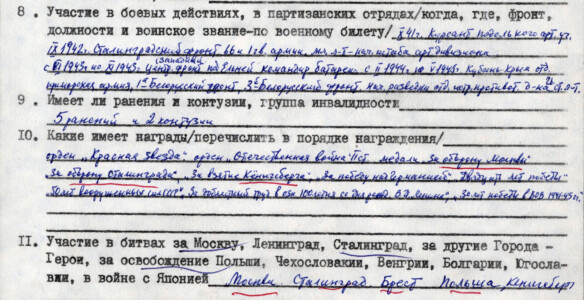 8 . Участие в боевых действиях, в партизанских отрядах/когда, где, фронт,
должности и воинское звание-по военному билету/ X 41г. Курсант Подольского арт. уч.
IX 1942г. Сталинградский фронт 66 и 1 гв. армии. мл. л-т нач. штаба арт. дивизиона
западный
с VI 1943г. по XI 1943г. Центр. фронт командир батареи с II 1944г. по V 1945г. Кубань Крым отд.
приморская армия, 1й Белорусский фронт, 3й Белорусский фронт. Нач. разведки отд. истр. противот. д-на ст. л-т.
9 . Имеет ли ранения и контузии, группа инвалидности
5 ранений и 2 контузии
10. Какие имеет награды/перечислить в порядке награждения/
орден „Красная звезда". орден „Отечественная война" I ст. медали „За оборону Москвы"
„За оборону Сталинграда", „За взятие Кёнигсберга", „За победу над Германией". Двадцать лет победы"
50 лет вооруженных сил СССР". За доблестный труд в озн. 100 летия со дня рожд. В.И. Ленина", 30 лет победы в ВОВ 1941-45г.г.
II. Участие в битвах за Москву, Ленинград, Сталинград, за другие Города -
Герои, за освобождение Польши, Чехословакии, Венгрии, Болгарии, Югосла-
вии, в войне с Японией Москва Сталинград Брест Польша, Кенигсберг